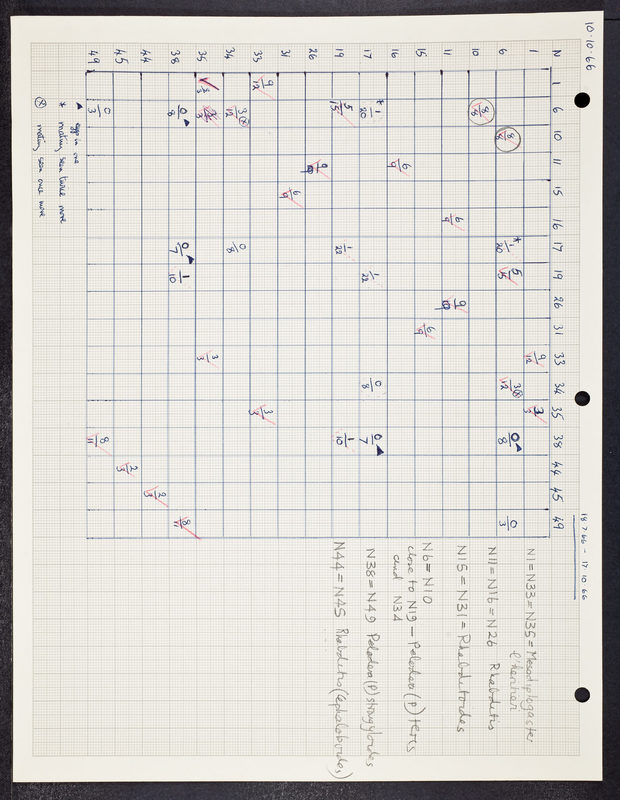 10·10·66
18.7.66 – 17.10.66
N 1 6 10 11 15 16 17 19 26 31 33 34 35 38 44 45 49
1 9/12 3/3
6 8/8 * 1/20 5/15 3⊗/12 0/8 ▲ 0/3
10 8/8
11 6/9 9/10
15 6/9
16 6/9
17 * 1/20 1/22 0/8 0/7 ▲
19 5/15 1/22 1/10
26 9/10
31 6/9
33 9/12 3/3
34 3⊗/12 0/8
35 3/3 3/3
38 0/8 ▲ 0/7 ▲ 1/10 8/11
44 2/3
45 2/3
49 0/3 8/11
▲ egg in one
* mating seen twice more
⊗ mating seen once more
N1=N33=N35=Mesodiplogaster
lheritieri
N11=N16=N26 Rhabditis
N15=N31=Rhabditoides
N6=N10
close to N19 – Pelodera (P) teres
and N34
N38=N49 Pelodera (P) strongyloides
N44=N45 Rhabditis (Cephaloboides)